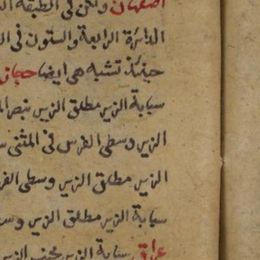 اصفهان ولكن فى الطبقة
الدائرة الرابعة والستون فى
حينئذ تشبه هى ايضا حجاز
سبابة الزير مطلق الزير بنصر
الزير وسطى الفرس فى المثنى
الزير مطلق الزير وسطى
سبابة الزير مطلق الزير
عراق سبابة الزير مجنب الزير